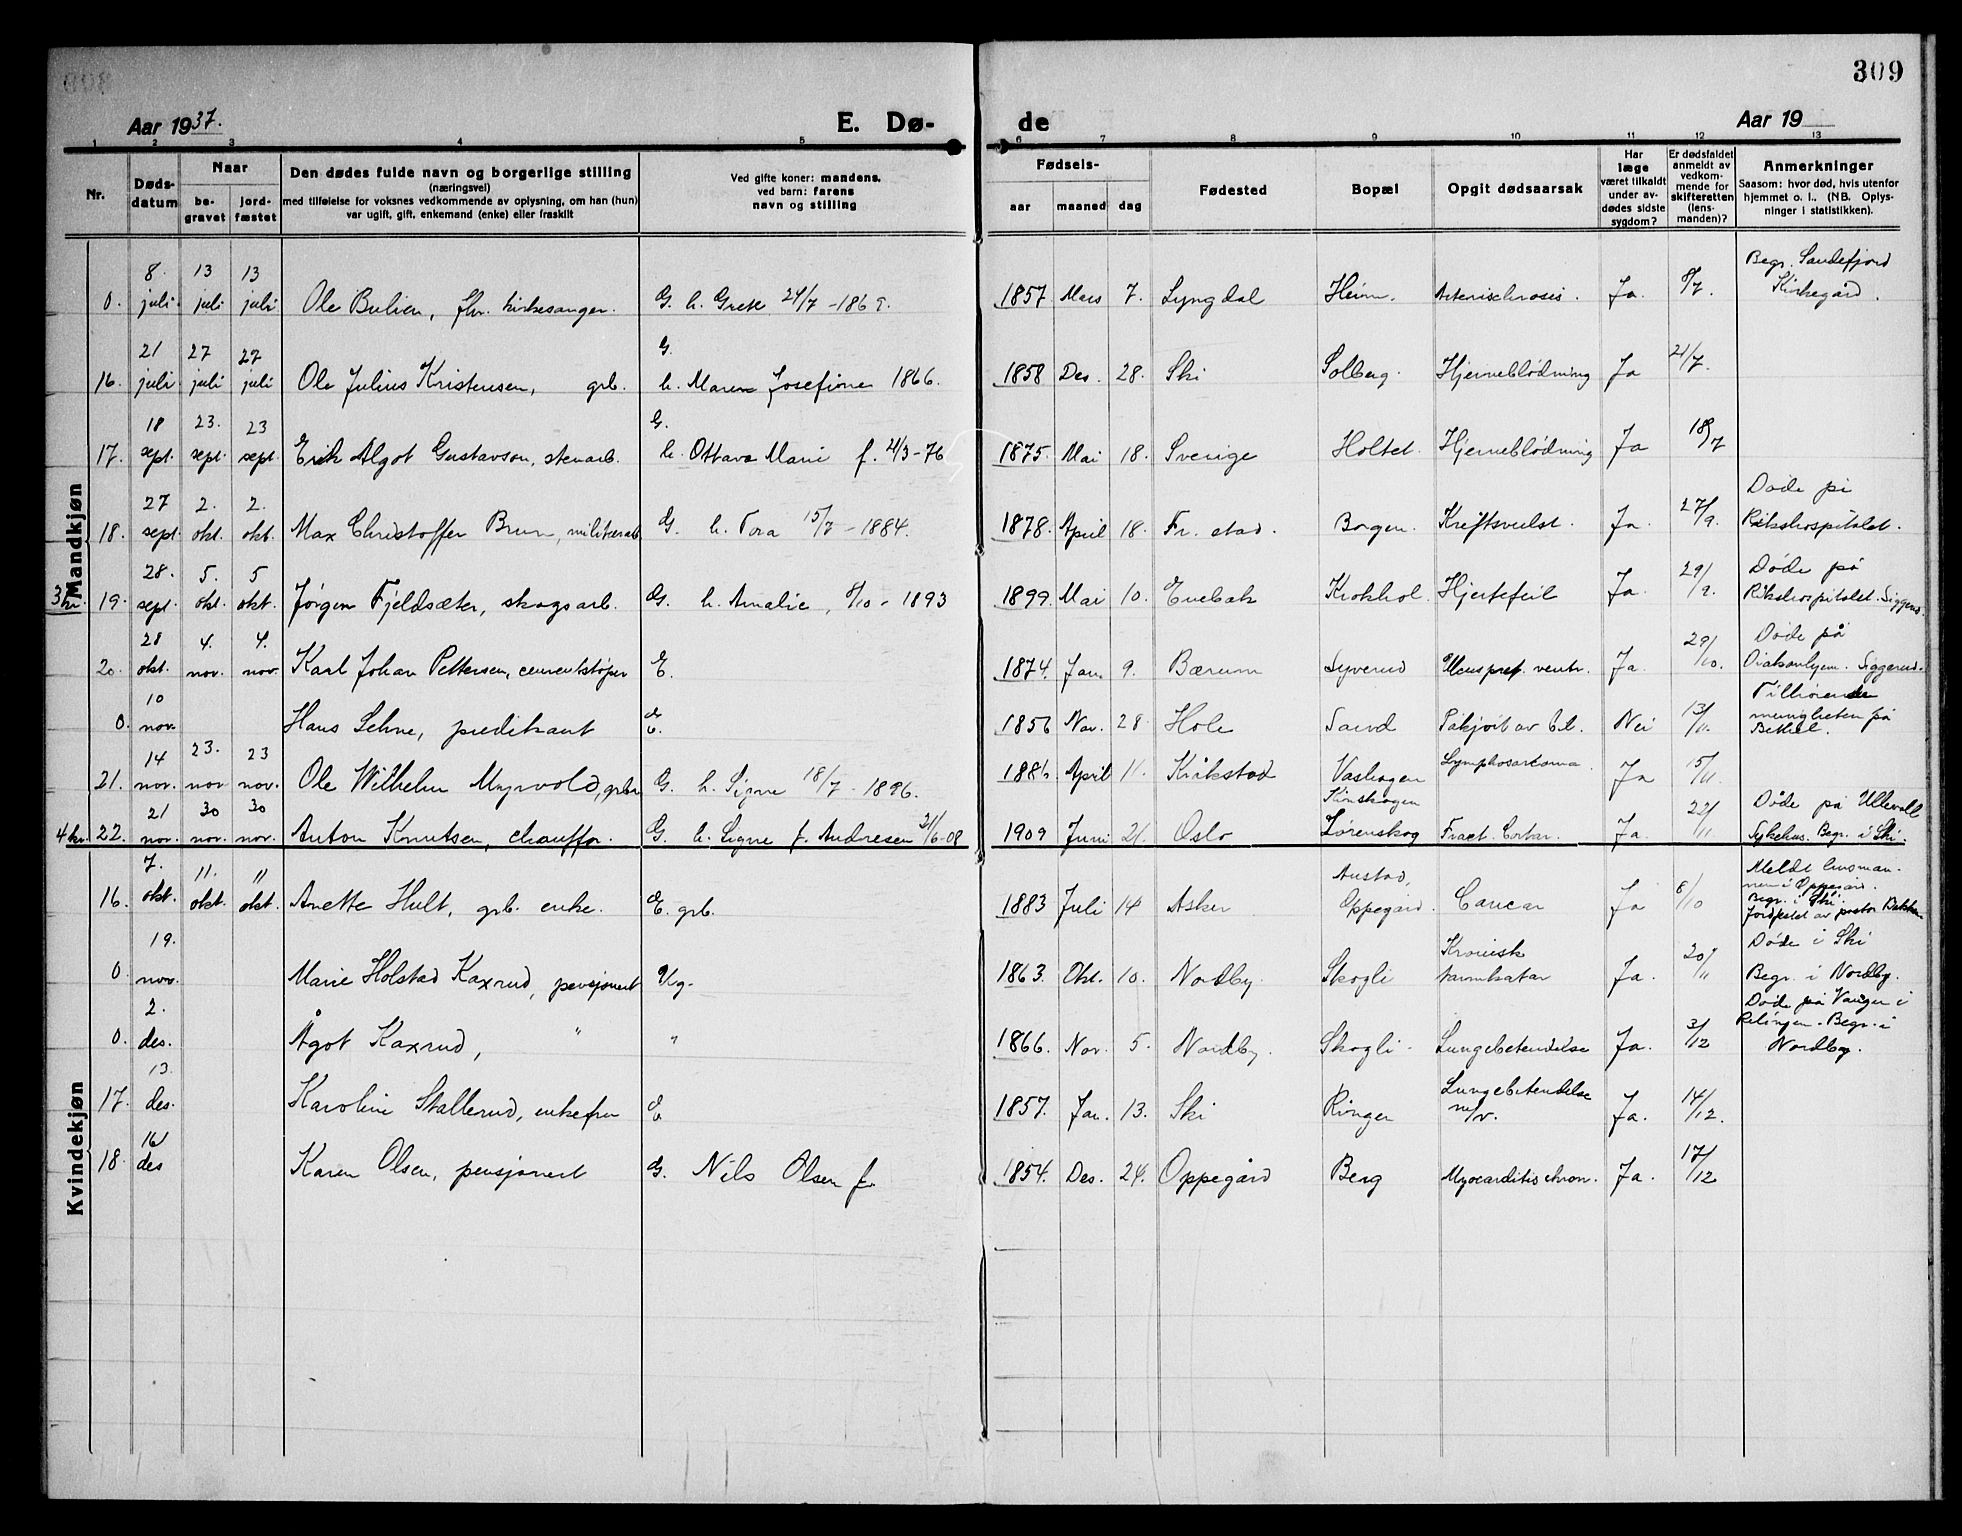 309
Aar 1937.
E. Dø-
de
Aar 19
1 2 3 4 5 6 7 8 9 10 11 12 13
Nr.
Døds-datum
Naar
be-gravet
jord-fæstet
Den dødes fulde navn og borgerlige stilling
(næringsvei)
med tilføielse for voksnes vedkommende av oplysning, om han (hun)
var ugift, gift, enkemand (enke) eller fraskilt
Ved gifte koner: mandens,
ved barn: farens
navn og stilling
Fødsels-
aar maaned dag
Fødested
Bopæl
Opgit dødsaarsak
Har læge været tilkaldt under av-dødes sidste sygdom?
Er dødsfaldet anmeldt av vedkom-mende for skifteretten (lens-manden)?
Anmerkninger
Saasom: hvor død, hvis utenfor hjemmet o. l.. (NB. Oplys-ninger i statistikken).
Mandkjøn
0. 8. juli 13 juli 13 juli Ole Bulien, fhv. kirkesanger. G. h. Grete 24/7 - 1869. 1857 Mars 7. Lyngdal Heim. Ja. 8/7. Begr. Sandefjord Kirkegård.
16. 21 juli 27 juli 27 juli Ole Julius Kristensen, grb. G. h. Maren Josefine 1866. 1858 Des. 28. Ski Solberg. Hjerneblödning Ja 21/7.
17. 18 sept. 23. sept. 23 sept. Erik Algot Gustavson, stenarb. G. h. Ottava Marie f. 4/3-76 1875. Mai 18. Sverige Holtet. Hjerneblödning Ja 18/7
18. 27 sept. 2. okt. 2. okt. Max Christoffer Brun, militærarb. G. h. Tora 15/7 - 1884. 1878. April 18. Fr. stad. Borgen. Kreftsvulst. Ja. 27/9. Döde på Rikshospitalet.
3 kr. 19. 28. sept. 5. okt. 5 okt. Jørgen Fjeldsæter, skogsarb. G. h. Amalie, 8/10 - 1893 1899. Mai 10. Enebak Krokhol. Hjertefeil Ja. 29/9. Döde på Rikshospitalet. Siggerud.
20. 28 okt. 4. nov. 4. nov. Karl Johan Pettersen, cementstöper E. 1874. Jan. 9. Bærum Syverud Ulcus pref. ventr. Ja. 29/10. Döde på Diakonhjem. Siggerud.
0. 10 nov. Hans Sehne, predikant E. 1856 Nov. 28. Hole Sand Påkjört av bil. Nei 13/11. Tilhörende menigheten på Betel.
21. 14 nov. 23. nov 23 nov. Ole Wilhelm Myrvold, grbr. G. h. Signe 18/7 - 1896. April 11. Kråkstad Vashagen Lymphosarkoma Ja 15/11.
4 kr. 22. 21 nov. 30 nov. 30 nov. Anton Knutsen, chauffør. G. h. Signe f. Andresen 21/6-08 1909 Juni 21. Oslo Lørenskog Fract. Ja. 22/11 Döde på Ullevall Sykehus. Begr. i Ski.
Kvindekjøn
16. 7. okt. 11. okt. 11 okt. Anette Hult, grb. enke. E. grb. 1883 Juli 14 Asker Austad, Oppegård. Cancer Ja 8/10 Meldt lensmannen i Oppegård. Begr. i Ski. Jordfestet av pastor Bakken
0. 19. nov. Marie Holstad Kaxrud, pensjonert Ug. 1863. Okt. 10. Nordby. Skogli Kronisk tarmkatar Ja. 20/11 Döde i Ski Begr. i Nordby.
0. 2. des. Ågot Kaxrud, " " 1866. Nov. 5. Nordby. Skogli. Lungebetendelse Ja. 3/12 Döde på Vanger i Relingen. Begr. i Nordby.
17. 13. des. Karoline Stallerud, enkefru E 1857. Jan. 13. Ski Ringer Lungebetendelse m/v. Ja. 14/12.
18. 16 des Karen Olsen, pensjonert G. Nils Olsen f. 1854. Des. 24. Oppegård Berg Myocarditis chron. Ja. 17/12